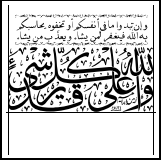 وإن تبدوا ما في أنفسكم أو تخفوه يحاسبكم
به الله فيغفر لمن يشاء ويعذب من يشاء
والله على كل شيء قدير